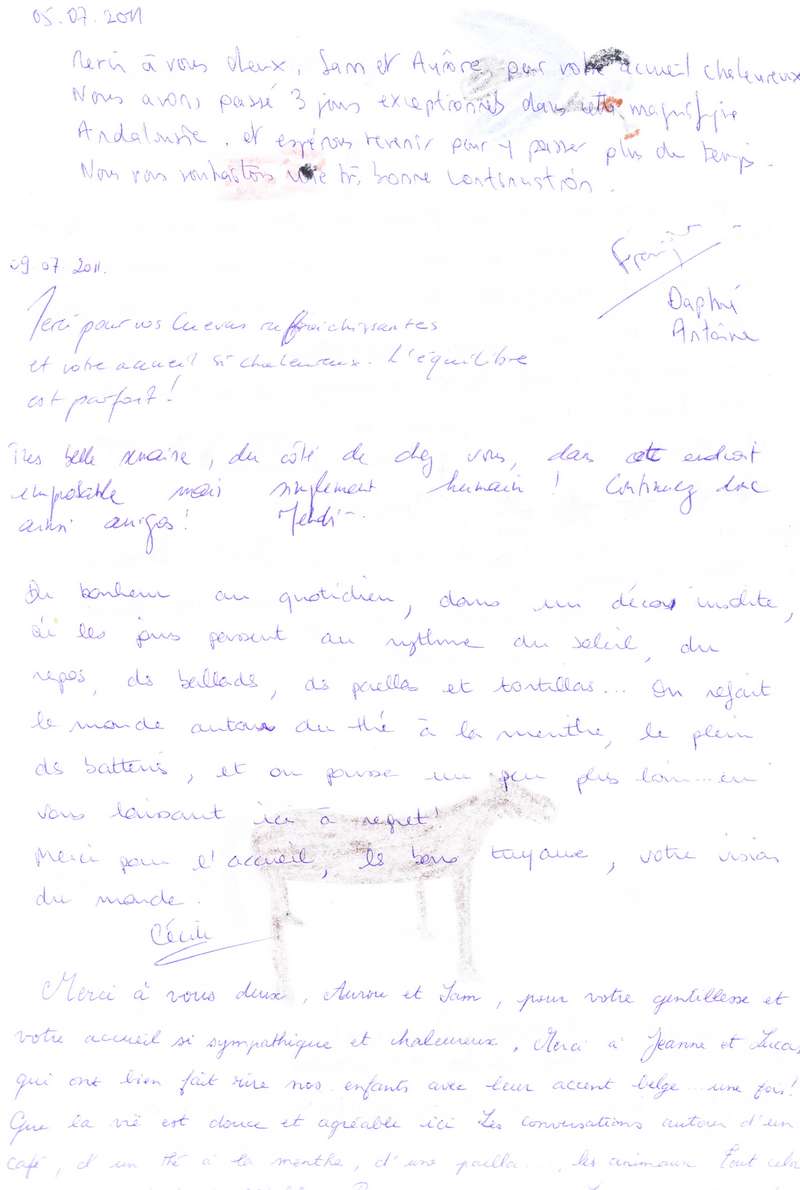 05.07.2011
Merci à vous deux, Sam et Aurore, pour votre accueil chaleureux
Nous avons passé 3 jours exceptionnels dans cette magnifique
Andalousie, et espérons revenir pour y passer plus de temps.
Nous vous souhaitons une très bonne continuation.
09 07 2011.
Daphné
Antoine
Merci pour vos Cuevas raffraichissantes
et votre accueil si chaleureux. L'équilibre
est parfait!
Très belle semaine, du côté de chez vous, dans cet endroit
improbable mais simplement humain! Continuez donc
ainsi amigos! Mehdi
Du bonheur au quotidien, dans un décor insolite,
où les jours passent au rythme du soleil, du
repos, des ballads, des paellas et tortillas... On refait
le monde autour du thé à la menthe, le plein
des batteries, et on pousse un peu plus loin... en
vous laissant ici à regret!
Merci pour l'accueil, les bons tuyaux, votre vision
du monde.
Cécile
Merci à vous deux, Aurore et Sam, pour votre gentillesse et
votre accueil si sympathique et chaleureux, Merci à Jeanne et Lucas,
qui ont bien fait rire nos enfants avec leur accent belge... une fois!
Que la vie est douce et agréable ici Les conversations autour d'un
café, d'un thé à la menthe, d'une paella..., les animaux Tout cela